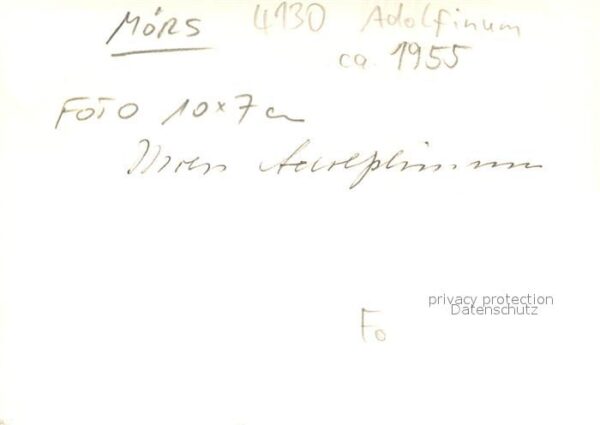 MÖRS 4130 Adolfinum
ca. 1955
FOTO 10x7cm
Moers Adolphinum
privacy protection
Datenschutz
Fo